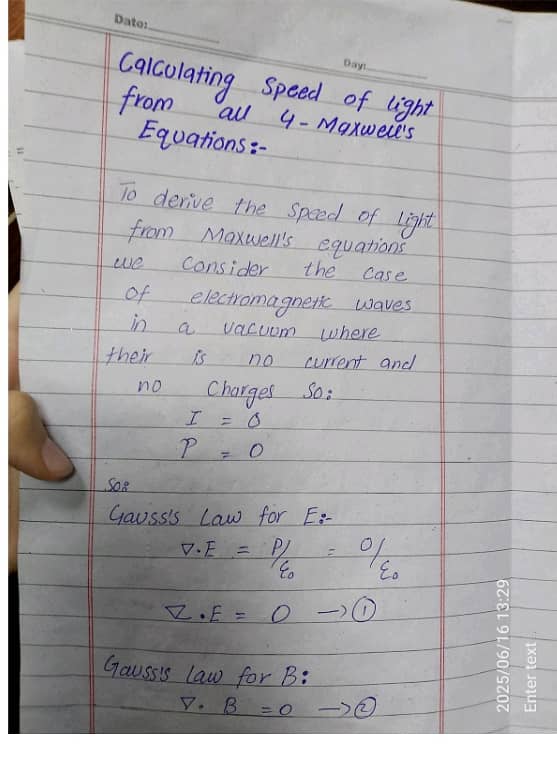 Date:
Day:
Calculating Speed of light
from all 4-Maxwell's
Equations:-
To derive the Speed of light
from Maxwell's equations
we Consider the case
of electromagnetic waves
in a vacuum where
their is no current and
no Charges So:
I = 0
P = 0
So:
Gauss's Law for E:-
∇.E = P/ε₀ = 0/ε₀
∇.E = 0 → ①
Gauss's Law for B:
∇. B = 0 → ②
2025/06/16 13:29
Enter text